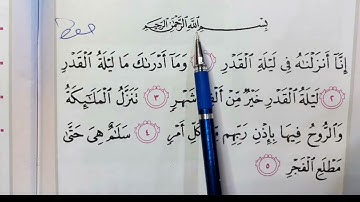 بِسْمِ اللَّهِ الرَّحْمَٰنِ الرَّحِيمِ
إِنَّا أَنزَلْنَٰهُ فِي لَيْلَةِ الْقَدْرِ وَمَا أَدْرَىٰكَ مَا لَيْلَةُ الْقَدْرِ
٢ لَيْلَةُ الْقَدْرِ خَيْرٌ مِّنْ شَهْرٍ ٣ تَنَزَّلُ الْمَلَٰٓئِكَةُ
وَالرُّوحُ فِيهَا بِإِذْنِ رَبِّهِم كُلِّ أَمْرٍ ٤ سَلَٰمٌ هِيَ حَتَّىٰ
مَطْلَعِ الْفَجْرِ ٥